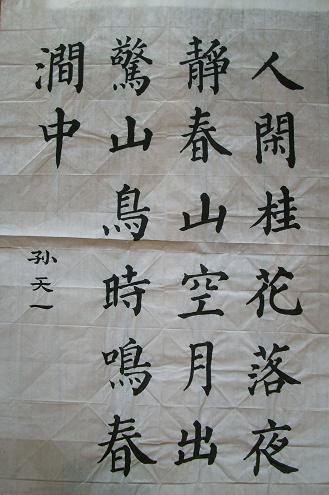 人閑桂花落夜
靜春山空月出
驚山鳥時鳴春
澗中
孙天一